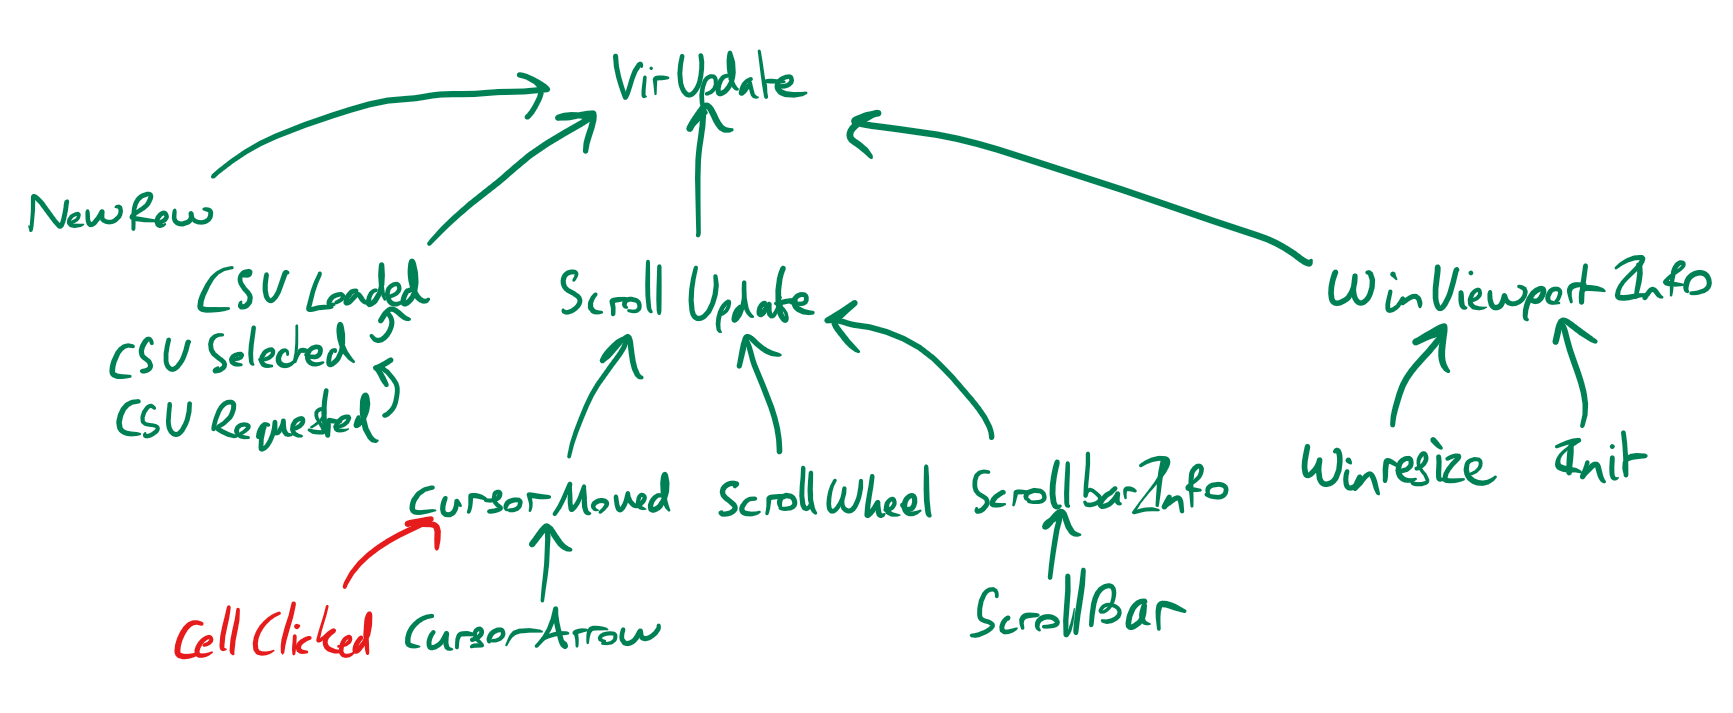 VirUpdate
NewRow
CSV Loaded
CSV Selected
CSV Requested
Scroll Update
WinViewportInfo
CursorMoved
ScrollWheel
ScrollbarInfo
Winresize
Init
CellClicked
CursorArrow
ScrollBar